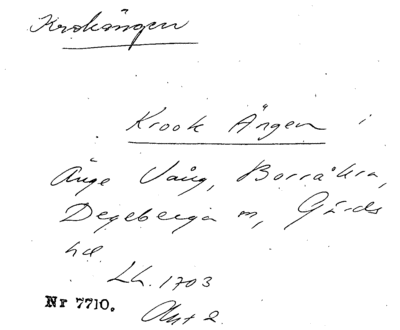 Krokängen
Krook Ängen i
Änge Vång, Borråkra,
Degeberga sn, Gärds
hd
Lh. 1703
Nr 7710. Akt 2